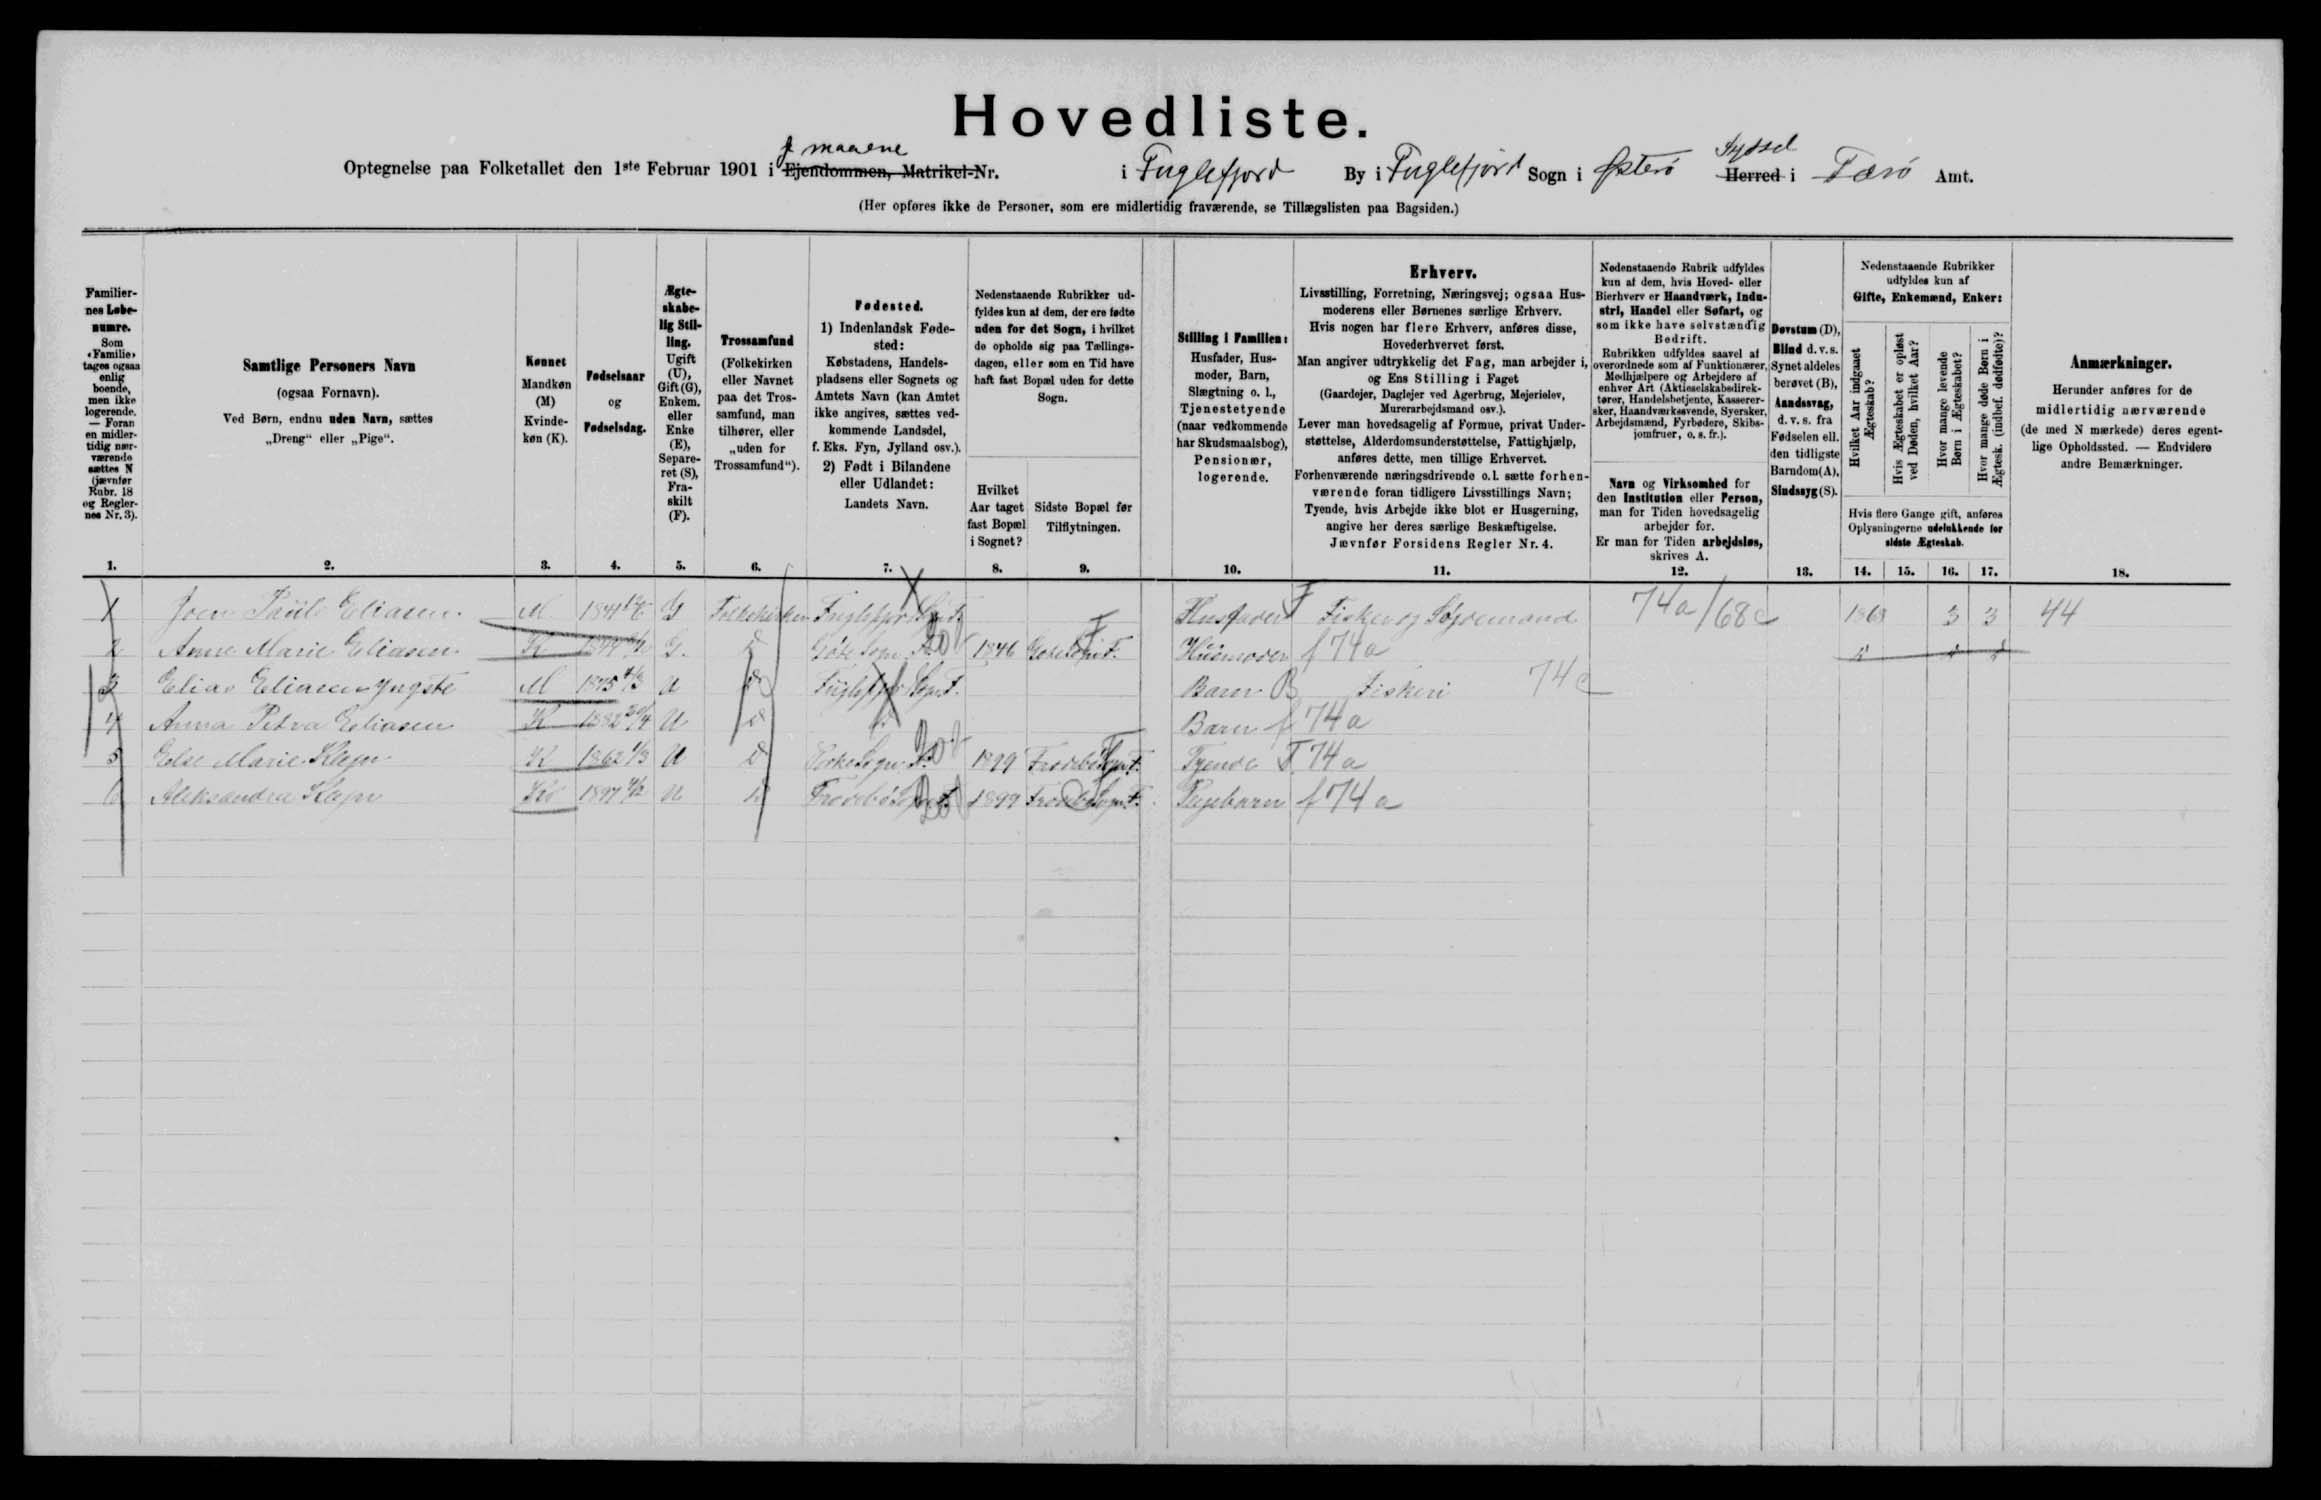 Hovedliste.
Optegnelse paa Folketallet den 1ste Februar 1901 i Ejendommen, Matrikel-Nr. i Fuglefjord By i Fuglefjord Sogn i Østerø Syssel Herred i Færø Amt.
(Her opføres ikke de Personer, som ere midlertidig fraværende, se Tillægslisten paa Bagsiden.)
Familiernes Løbenumre.
Som «Familie» tages ogsaa enlig boende, men ikke logerende. — Foran en midlertidig nærværende sættes N (jævnfør Rubr. 18 og Reglernes Nr. 3).
Samtlige Personers Navn
(ogsaa Fornavn).
Ved Børn, endnu uden Navn, sættes
„Dreng" eller „Pige".
Kønnet
Mandkøn (M)
Kvindekøn (K).
Fødselsaar
og
Fødselsdag.
Ægteskabelig Stilling.
Ugift (U), Gift (G), Enkem. eller Enke (E), Separeret (S), Fraskilt (F).
Trossamfund
(Folkekirken eller Navnet paa det Trossamfund, man tilhører, eller „uden for Trossamfund").
Fødested.
1) Indenlandsk Fødested:
Købstadens, Handelspladsens eller Sognets og Amtets Navn (kan Amtet ikke angives, sættes vedkommende Landsdel, f. Eks. Fyn, Jylland osv.).
2) Født i Bilandene eller Udlandet:
Landets Navn.
Nedenstaaende Rubrikker udfyldes kun af dem, der ere fødte uden for det Sogn, i hvilket de opholde sig paa Tællingsdagen, eller som en Tid have haft fast Bopæl uden for dette Sogn.
Hvilket Aar taget fast Bopæl i Sognet?
Sidste Bopæl før Tilflytningen.
Stilling i Familien:
Husfader, Husmoder, Barn, Slægtning o. l., Tjenestetyende (naar vedkommende har Skudsmaalsbog), Pensionær, logerende.
Erhverv.
Livsstilling, Forretning, Næringsvej; ogsaa Husmoderens eller Børnenes særlige Erhverv.
Hvis nogen har flere Erhverv, anføres disse, Hovederhvervet først.
Man angiver udtrykkelig det Fag, man arbejder i, og Ens Stilling i Faget
(Gaardejer, Daglejer ved Agerbrug, Mejerielev, Murerarbejdsmand osv.).
Lever man hovedsagelig af Formue, privat Understøttelse, Alderdomsunderstøttelse, Fattighjælp, anføres dette, men tillige Erhvervet.
Forhenværende næringsdrivende o. l. sætte forhenværende foran tidligere Livsstillings Navn;
Tyende, hvis Arbejde ikke blot er Husgerning, angive her deres særlige Beskæftigelse.
Jævnfør Forsidens Regler Nr. 4.
Nedenstaaende Rubrik udfyldes kun af dem, hvis Hoved- eller Bierhverv er Haandværk, Industri, Handel eller Søfart, og som ikke have selvstændig Bedrift.
Rubrikken udfyldes saavel af overordnede som af Funktionærer, Medhjælpere og Arbejdere af enhver Art (Aktieselskabsdirektører, Handelsbetjente, Kasserersker, Haandværkssvende, Syersker, Arbejdsmænd, Fyrbødere, Skibsjomfruer, o. s. fr.).
Navn og Virksomhed for den Institution eller Person, man for Tiden hovedsagelig arbejder for.
Er man for Tiden arbejdsløs, skrives A.
Døvstum (D), Blind d. v. s. Synet aldeles berøvet (B), Aandssvag, d. v. s. fra Fødselen ell. den tidligste Barndom (A), Sindssyg (S).
Nedenstaaende Rubrikker udfyldes kun af
Gifte, Enkemænd, Enker:
Hvilket Aar indgaaet Ægteskab?
Hvis Ægteskabet er opløst ved Døden, hvilket Aar?
Hvor mange levende Børn i Ægteskabet?
Hvor mange døde Børn i Ægtesk. (indbef. dødfødte)?
Hvis flere Gange gift, anføres Oplysningerne udelukkende for sidste Ægteskab.
Anmærkninger.
Herunder anføres for de midlertidig nærværende (de med N mærkede) deres egentlige Opholdssted. — Endvidere andre Bemærkninger.
1. 2. 3. 4. 5. 6. 7. 8. 9. 10. 11. 12. 13. 14. 15. 16. 17. 18.
1 Eliasen M 1841 G Folkekirken Husfader F Fisker og 74a/68c 3 3 44
2 Anne Marie Eliasen K G. 1846 Husmoder f 74a
3 Elias Eliasen yngste M 1875 U Barn B Fiskeri 74c
4 Anna Petra Eliasen K 1882 U Barn f 74a
5 Else Marie K 1862 U 1899 Tyende T 74a
6 Aleksandra 1897 U 1899 f 74a